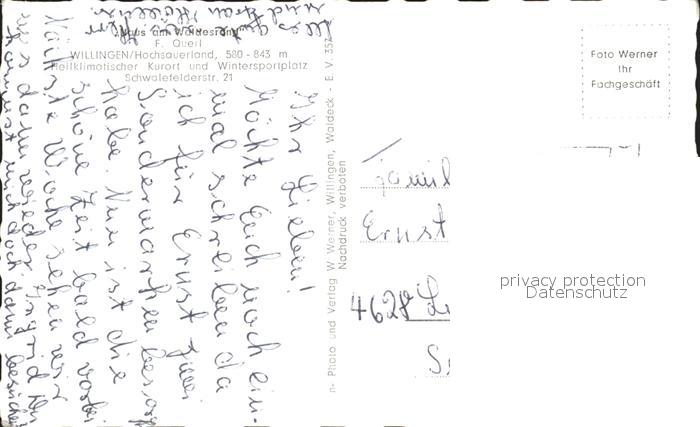 Haus am Waldesrand
F. Querl
WILLINGEN/Hochsauerland, 580 - 843 m
Heilklimatischer Kurort und Wintersportplatz
Schwalefelderstr. 21
Ihr Lieben!
Möchte Euch noch ein-
mal schreiben da
ich für Ernst zwei
Sondermarken besorgt
habe. Nun ist die
schöne Zeit bald vorbei
Nächste Woche sehen wir
uns dann wieder Ingrid
kommst mich doch dann besuchen
Alles gut
und Frau
n- Photo und Verlag W Werner, Willingen, Waldeck - E. V. 352
Nachdruck verboten
Foto Werner
Ihr
Fachgeschäft
Famil
Ernst
4628
privacy protection
Datenschutz